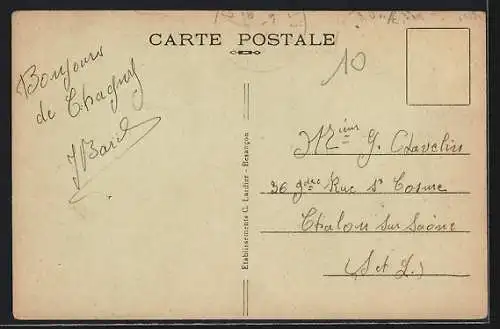 CARTE POSTALE
10
Bonjours
de Chagny
J Bard
Etablissements C. Lardier - Besançon
Mr G. Clavelin
36 gde Rue St Cosme
Chalon sur Saône
(S et L.)